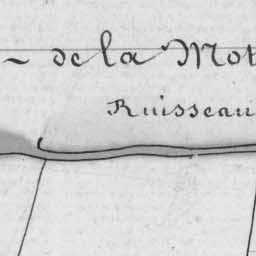 de la Mot
Ruisseau